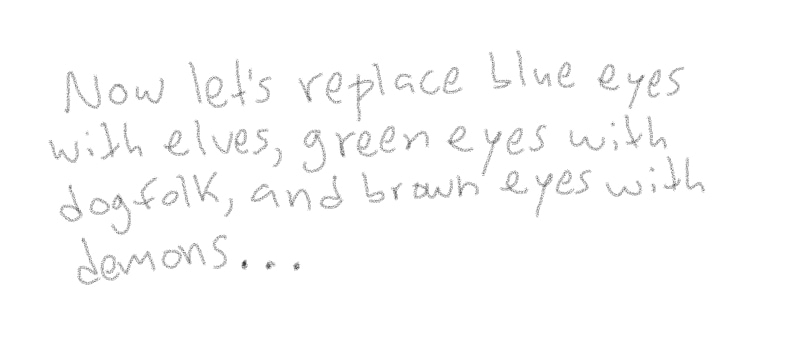 Now let's replace blue eyes
with elves, green eyes with
dogfolk, and brown eyes with
demons...